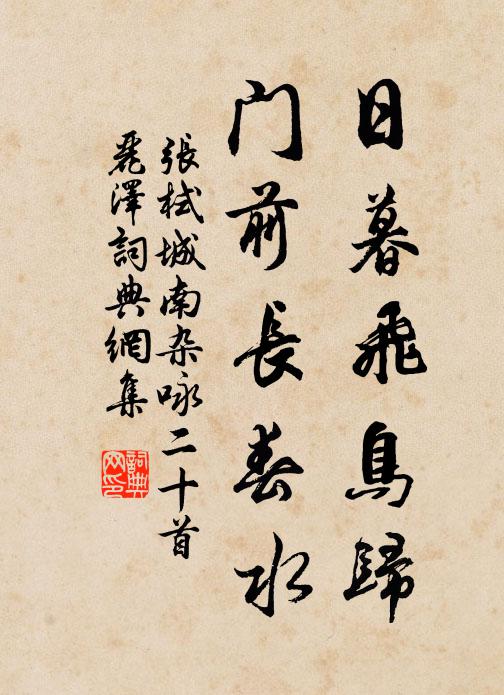 日暮飛鳥歸
門前長春水
張栻城南杂咏二十首
麗澤詞典網集
詞典网印